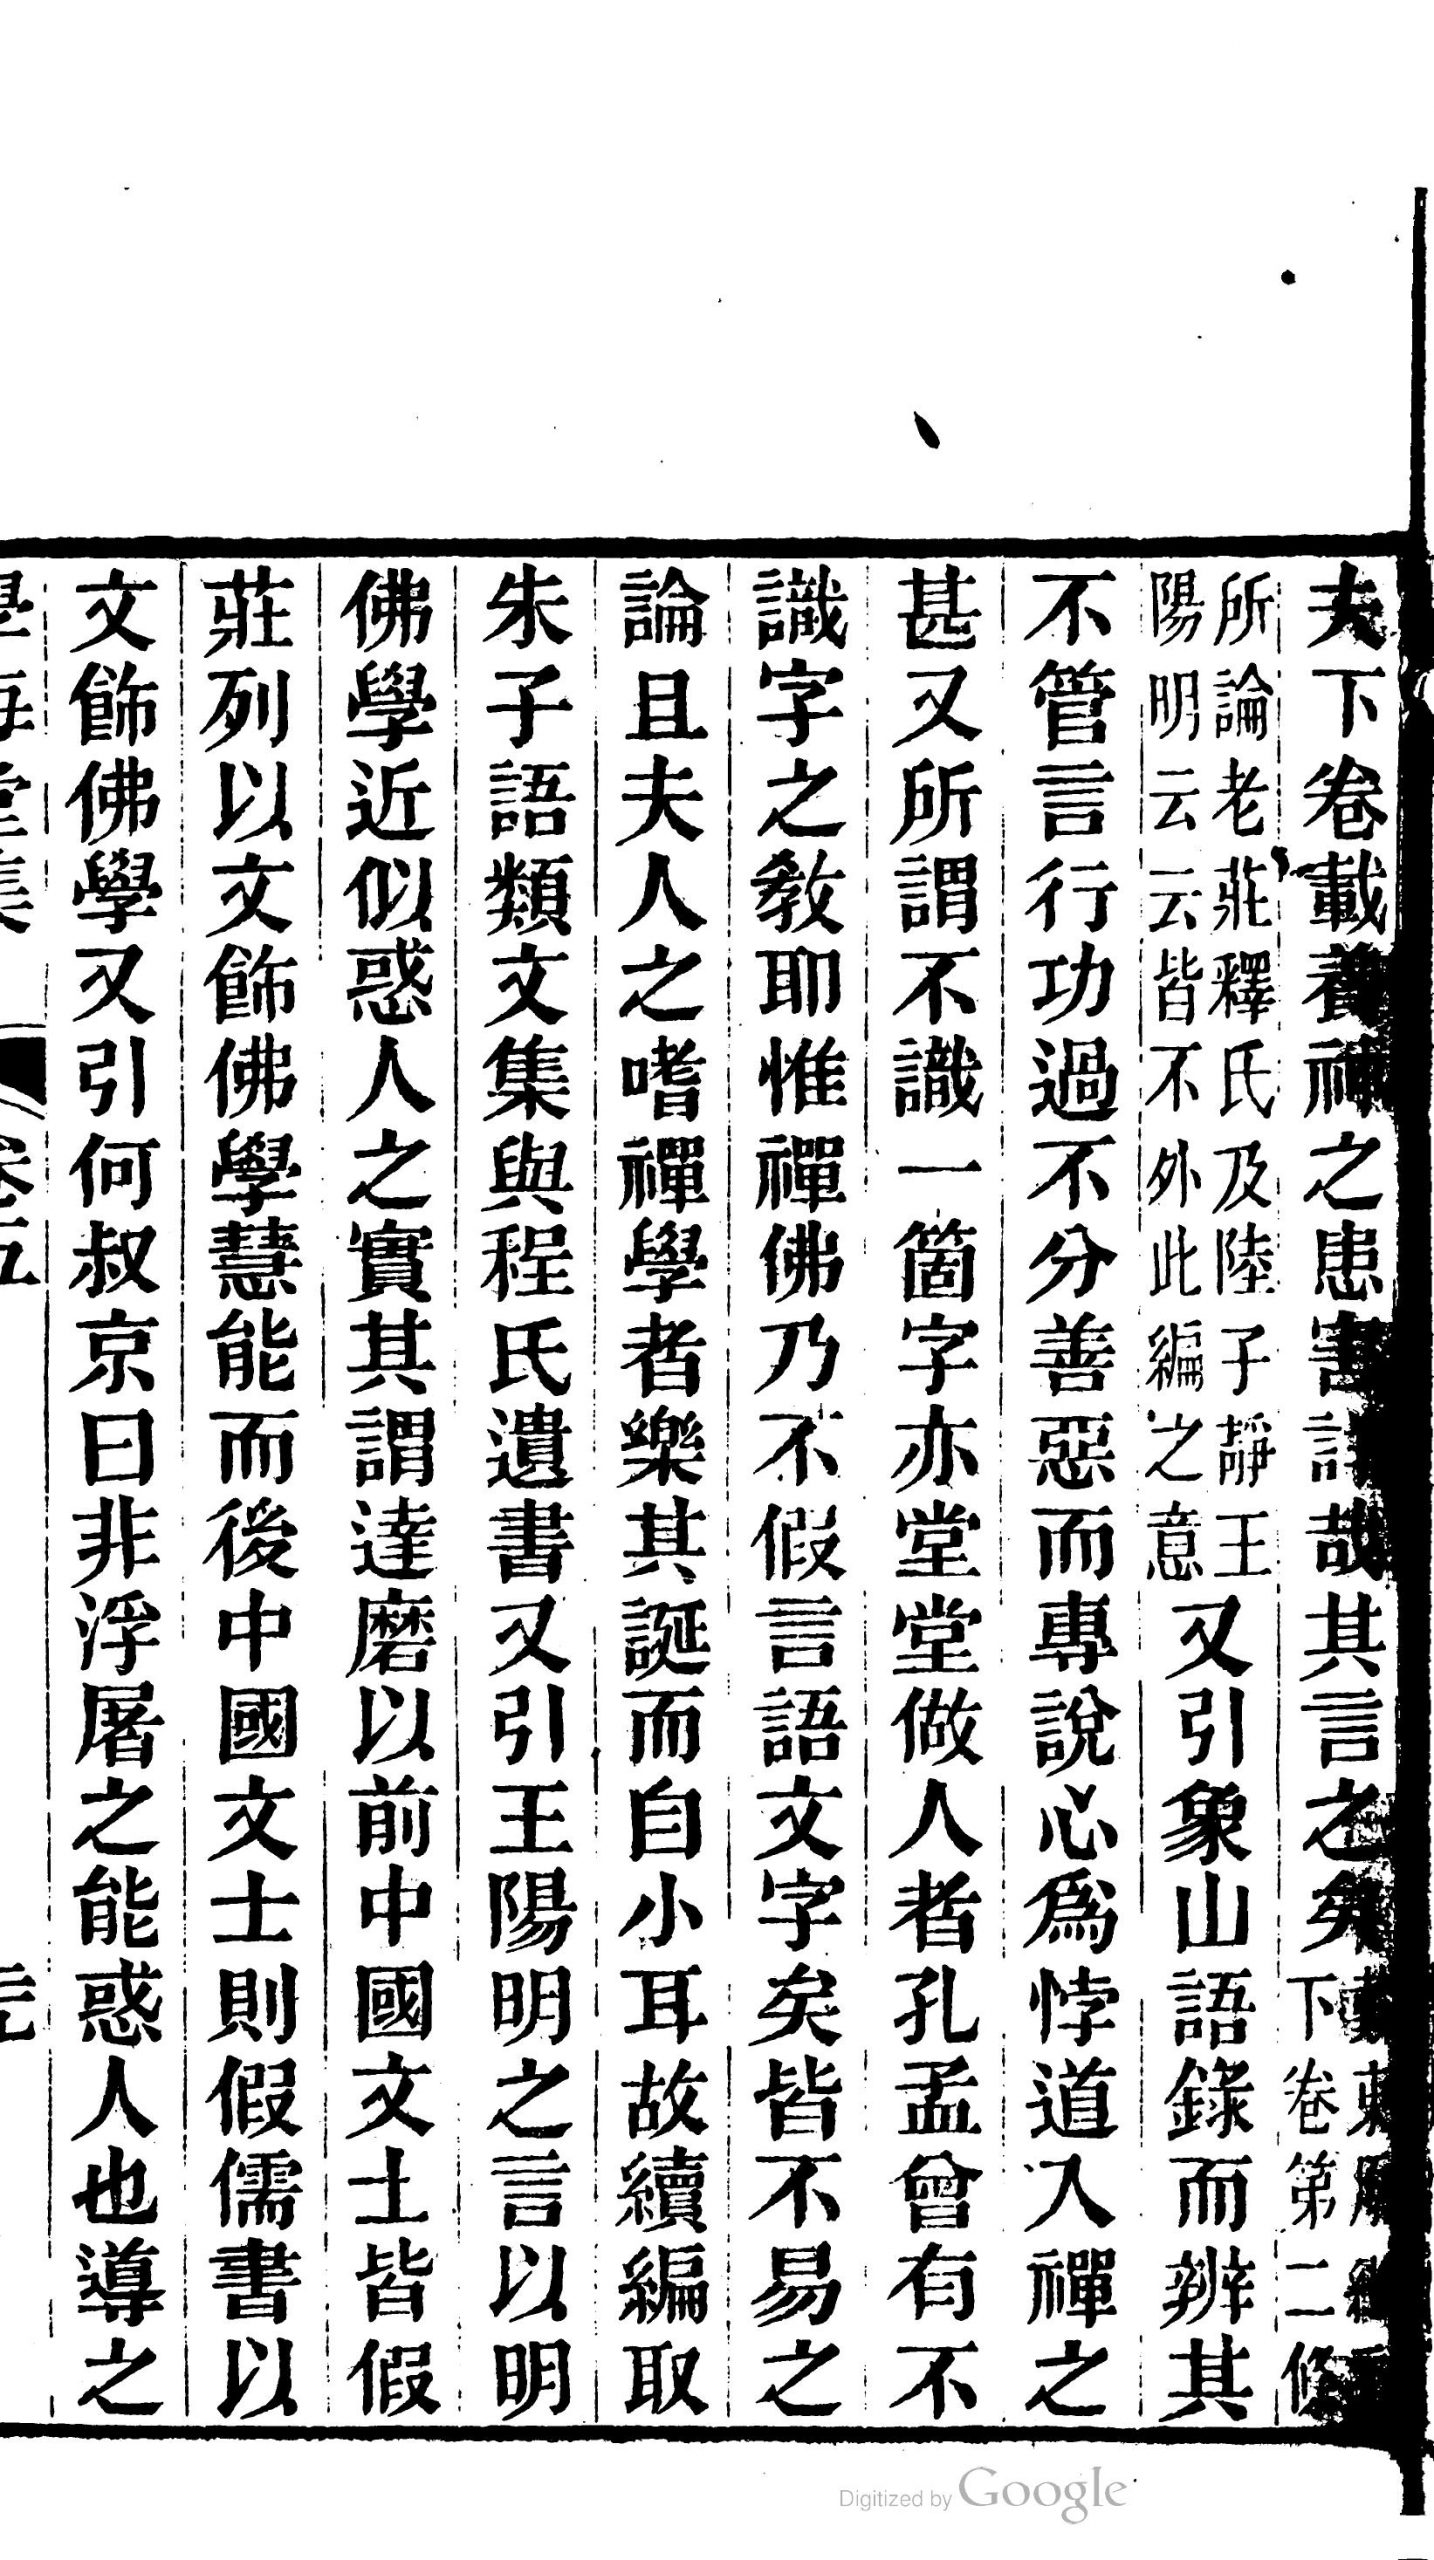 夫下卷載養神之患害詳哉其言之矣
下卷第二條
所論老莊釋氏及陸子靜王
陽明云云皆不外此編之意
又引象山語錄而辨其
不管言行功過不分善惡而專說心爲悖道入禪之
甚又所謂不識一箇字亦堂堂做人者孔孟曾有不
識字之教耶惟禪佛乃不假言語文字矣皆不易之
論且夫人之嗜禪學者樂其誕而自小耳故續編取
朱子語類文集與程氏遺書又引王陽明之言以明
佛學近似惑人之實其謂達磨以前中國文士皆假
莊列以文飾佛學慧能而後中國文士則假儒書以
文飾佛學又引何叔京曰非浮屠之能惑人也導之
學海堂集 卷五
Digitized by Google